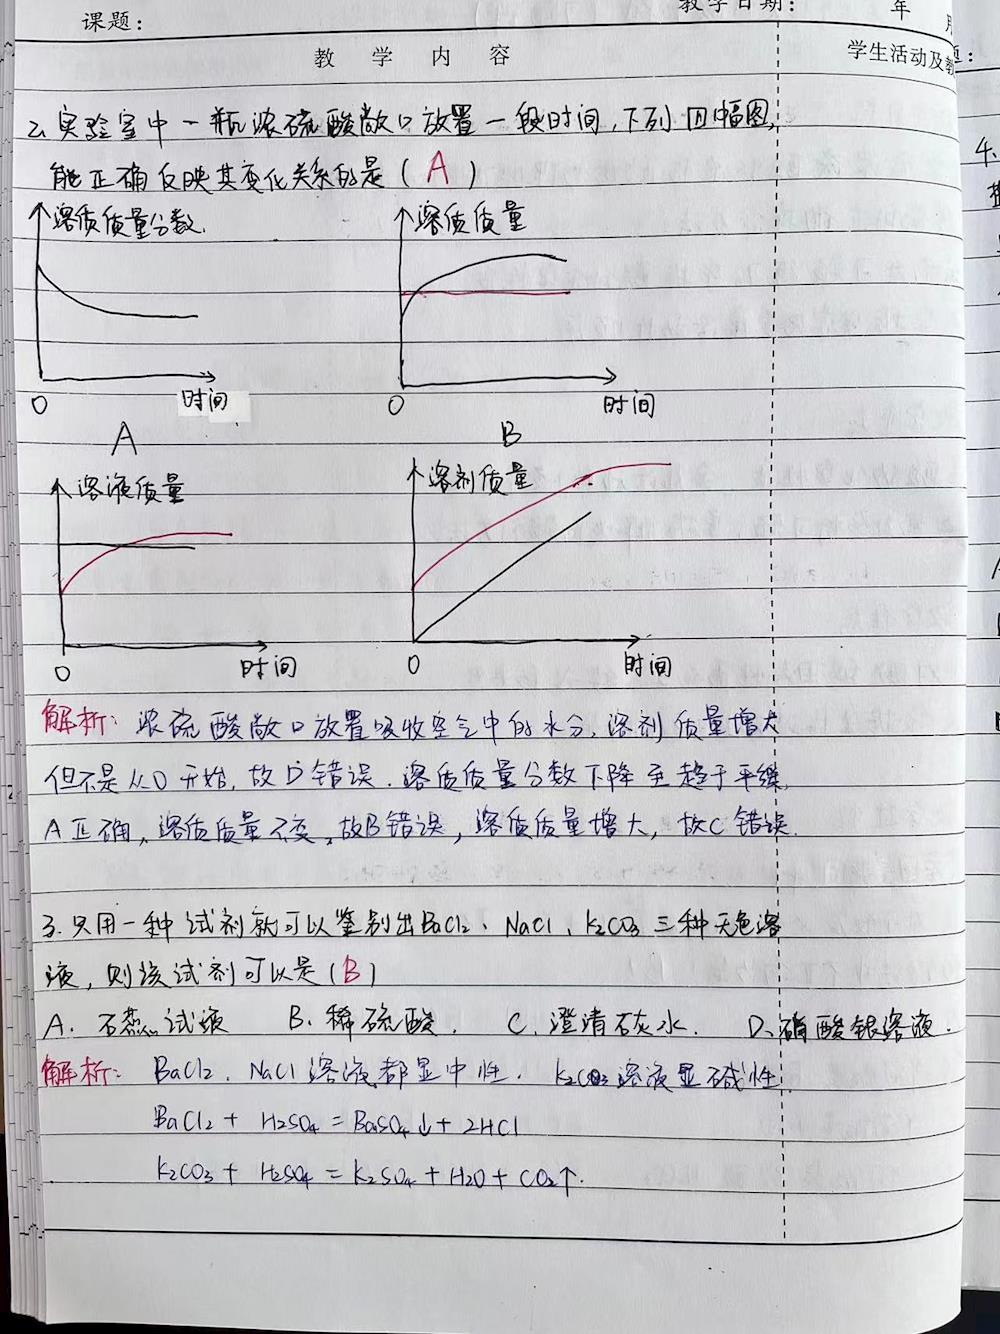 课题：
教学日期：
年 月
教 学 内 容
学生活动及教
2. 实验室中一瓶浓硫酸敞口放置一段时间，下列四幅图，
能正确反映其变化关系的是（A）
溶质质量分数
溶质质量
0 时间
0 时间
A
B
溶液质量
溶剂质量
0 时间
0 时间
解析：浓硫酸敞口放置吸收空气中的水分，溶剂质量增大
但不是从0开始，故D错误．溶质质量分数下降至趋于平缓，
A正确，溶质质量不变，故B错误，溶质质量增大，故C错误．
3. 只用一种试剂就可以鉴别出BaCl₂、NaCl、K₂CO₃三种无色溶
液，则该试剂可以是（B）
A. 石蕊试液 B. 稀硫酸． C. 澄清石灰水． D. 硝酸银溶液．
解析：BaCl₂、NaCl溶液都显中性．K₂CO₃溶液显碱性
BaCl₂ + H₂SO₄ = BaSO₄↓ + 2HCl
K₂CO₃ + H₂SO₄ = K₂SO₄ + H₂O + CO₂↑．
4.